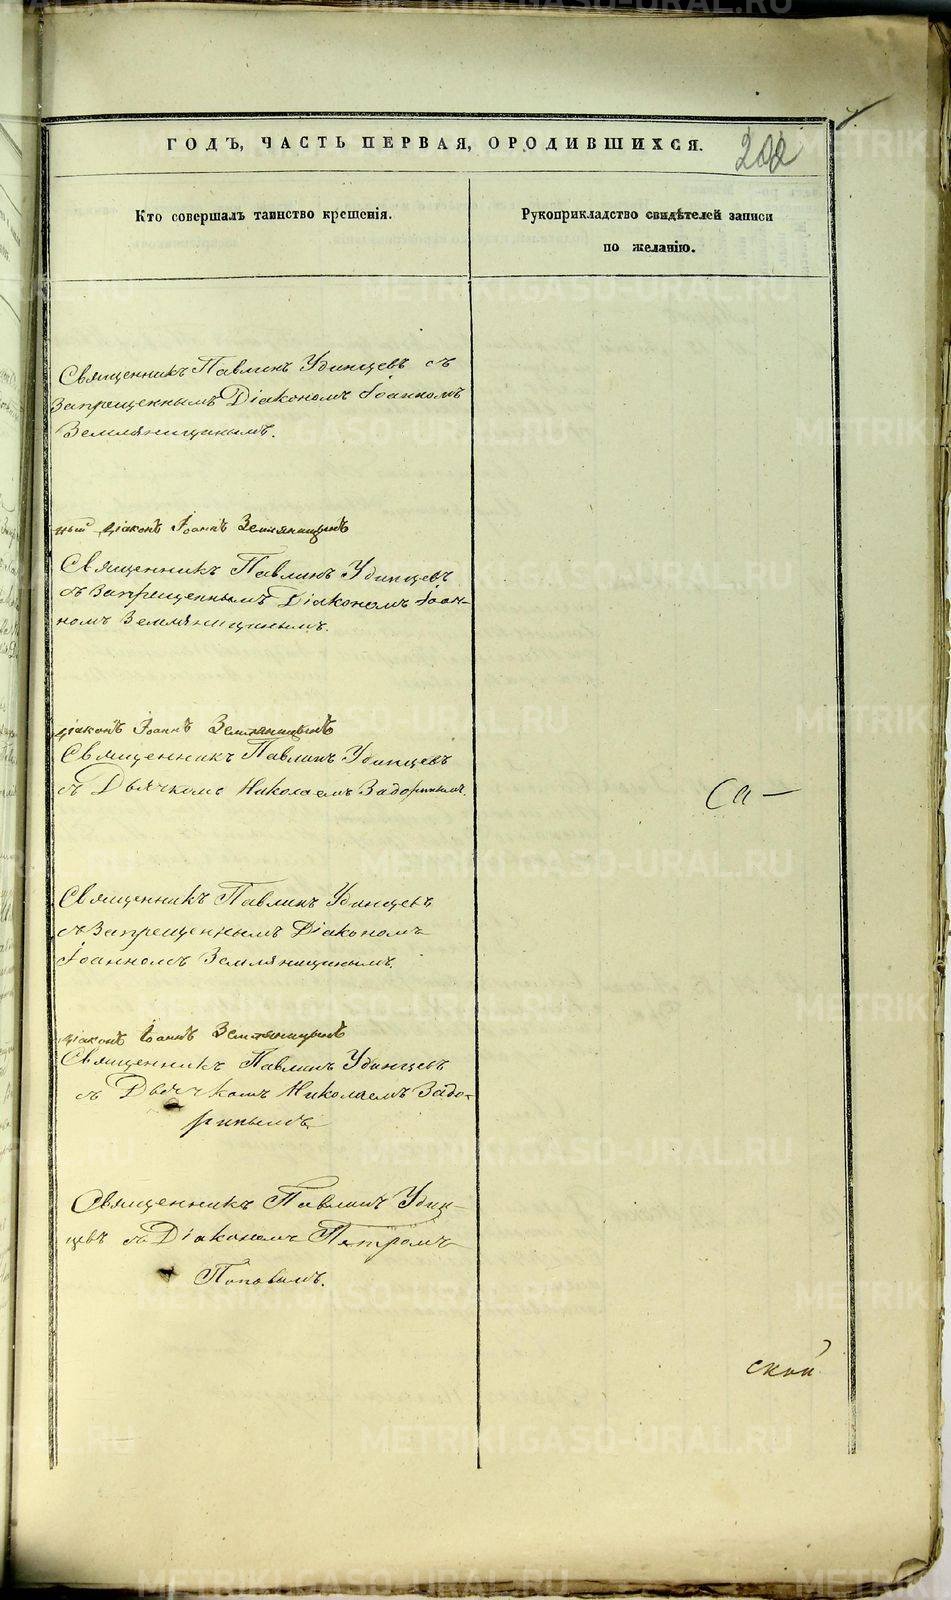 ГОДЪ, ЧАСТЬ ПЕРВАЯ, ОРОДИВШИХСЯ.
Кто совершалъ таинство крещенія.
Рукоприкладство свидѣтелей записи
по желанію.
Священникъ Павлинъ Удинцевъ съ
Запрещеннымъ Діакономъ Іоанномъ
Земляницынымъ.
ный діаконъ Іоаннъ Земляницынъ
Священникъ Павлинъ Удинцевъ
съ Запрещеннымъ Діакономъ Іоан-
номъ Земляницынымъ.
діаконъ Іоаннъ Земляницынъ
Священникъ Павлинъ Удинцевъ
съ Дьячкомъ Николаемъ Задоринымъ.
Са-
Священникъ Павлинъ Удинцевъ
съ Запрещеннымъ Діакономъ
Іоанномъ Земляницынымъ.
діаконъ Іоаннъ Земляницынъ
Священникъ Павлинъ Удинцевъ
съ Дьячкомъ Николаемъ Задо-
ринымъ
Священникъ Павлинъ Удин-
цевъ съ Діакономъ Петромъ
Поповымъ.
ской
METRIKI.GASO-URAL.RU